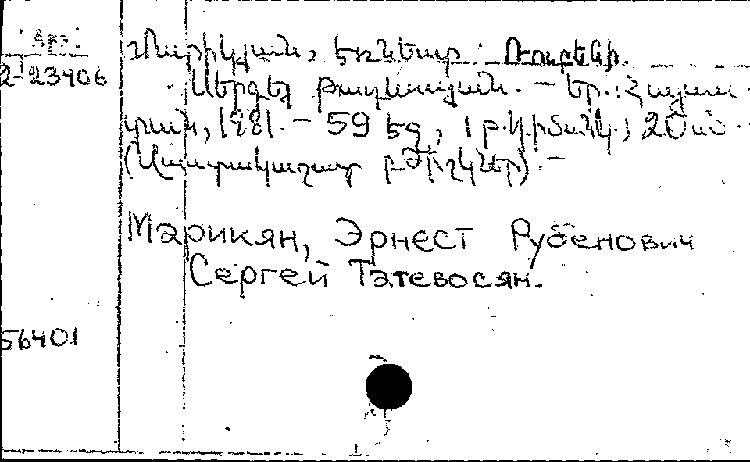 2-23406
Մարիկյան, Էռնեստ Ռուբենի.
Սերգեյ Թադևոսյան. - Եր.: Հայաս
տան, 1981. - 59 էջ, 1 թ. դիմանկ.; 20 սմ. -
(Ականավոր բժիշկներ). -
Марикян, Эрнест Рубенович
Сергей Татевосян.
56401